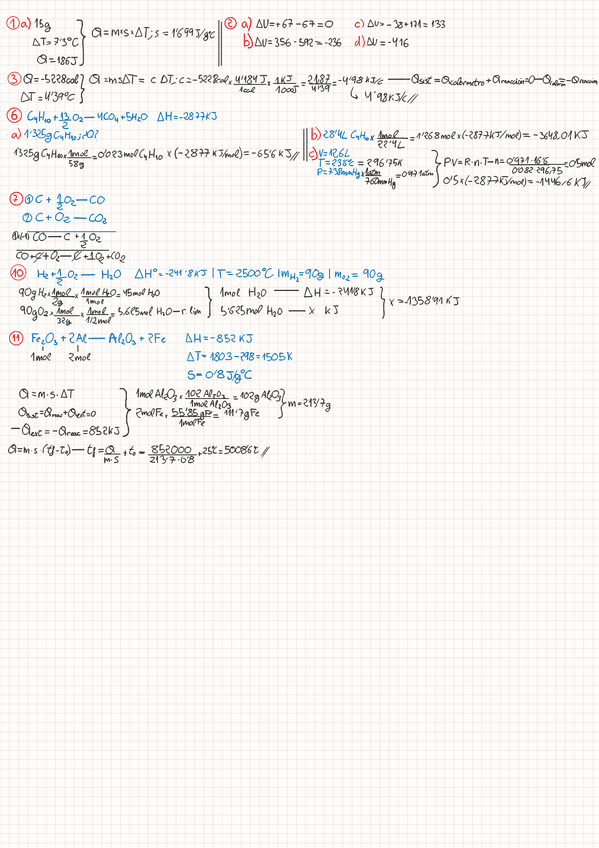 ① a) 15g
ΔT = 7'3°C
Q = 186J
Q = m·s·ΔT; s = 1'699 J/g°C
② a) ΔU = +67 - 67 = 0
b) ΔU = 356 - 592 = -236
c) ΔU = -38 + 171 = 133
d) ΔU = -416
③ Q = -5228cal
ΔT = 4'39°C
Q = msΔT = c ΔT; c = -5228cal × 4'184J/1cal × 1KJ/1000J = 21'87/4'39 = -4'98 KJ/°C — Qsist = Qcalorímetro + Qreacción = 0
4'98KJ/°C //
⑥ C4H10 + 13/2 O2 — 4CO2 + 5H2O ΔH = -2877KJ
a) 1'325g C4H10
1'325g C4H10 × 1mol/58g = 0'023mol C4H10 × (-2877 KJ/mol) = -65'6 KJ //
b) 28'4L C4H10 × 1mol/22'4L = 1'268mol × (-2877KJ/mol) = -3648,01KJ //
c) V = 12,6L
T = 23'6°C = 296'75K
P = 738mmHg × 1atm/760mmHg = 0'971atm
PV = R·n·T — n = 0'971·12'6/0'082·296'75 = 0'5mol
0'5 × (-2877KJ/mol) = -1446,6 KJ //
⑦ ① C + 1/2 O2 — CO
② C + O2 — CO2
①×(-1) CO — C + 1/2 O2
CO + C + O2 — C + 1/2 O2 + CO2
⑩ H2 + 1/2 O2 — H2O ΔH° = -241'8KJ | T = 2500°C | mH2 = 90g | mO2 = 90g
90g H2 × 1mol/2g × 1mol H2O/1mol = 45mol H2O
90g O2 × 1mol/32g × 1mol/1/2mol = 5,625mol H2O — r. lim
1mol H2O — ΔH = -241'8KJ
5'625mol H2O — x KJ
x = 1358'91 KJ
⑪ Fe2O3 + 2Al — Al2O3 + 2Fe ΔH = -852KJ
1mol 2mol
ΔT = 1803 - 298 = 1505K
S = 0'8J/g°C
Q = m·s·ΔT
Qsist = Qreac + Qext = 0
— Qext = -Qreac = 852KJ
1mol Al2O3 × 102 Al2O3/1mol Al2O3 = 102g Al2O3
2mol Fe × 55'85gFe/1mol Fe = 111'7g Fe
m = 213'7g
Q = m·s·(tf - t0) — tf = Q/m·s + t0 = 852000/213'7·0'8 + 25°C = 5008'6°C //